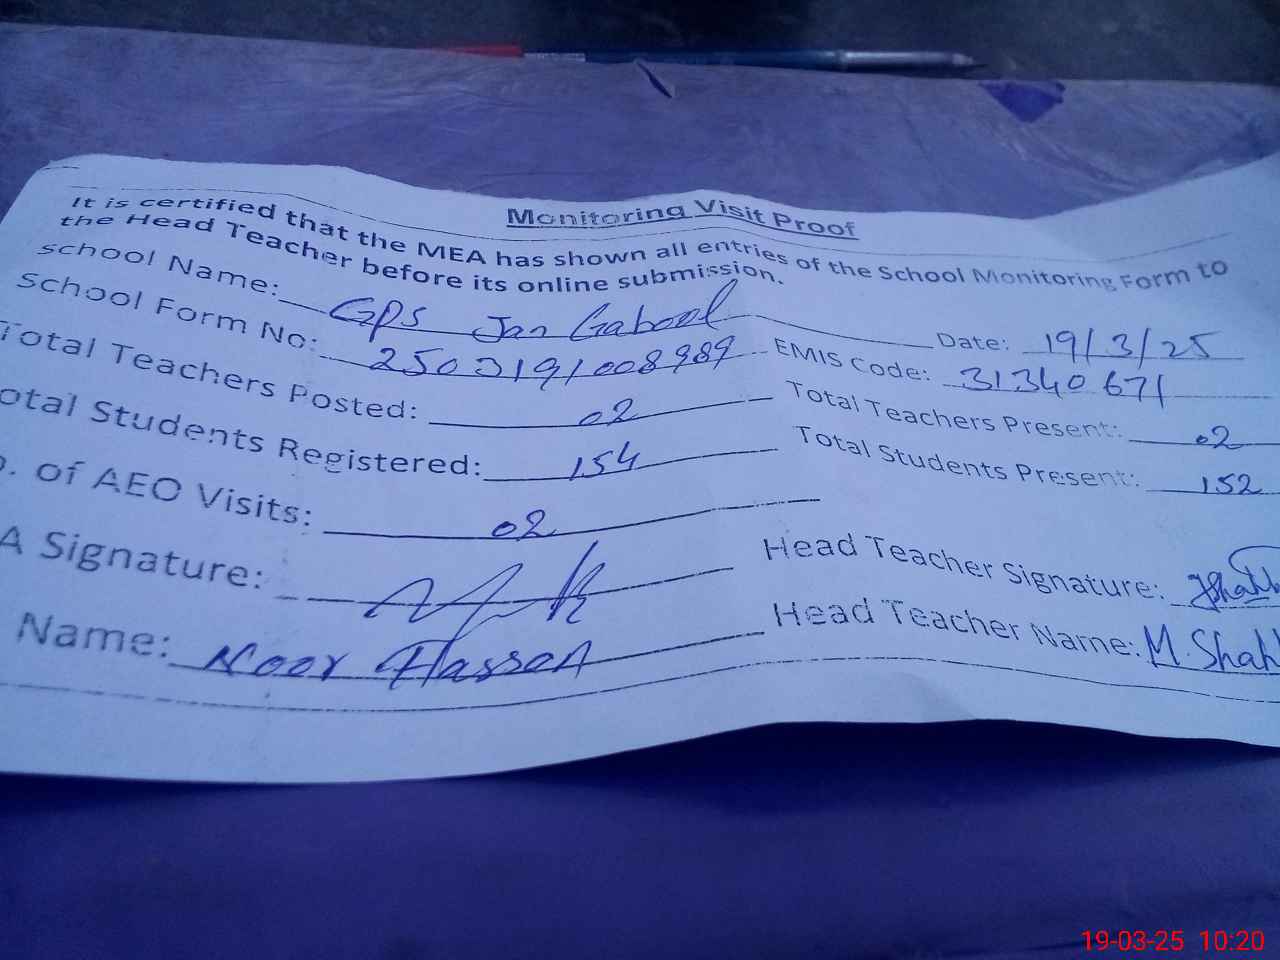 Monitoring Visit Proof
It is certified that the MEA has shown all entries of the School Monitoring Form to
the Head Teacher before its online submission.
school Name: GPS Jan Gabool Date: 19/3/25
School Form No: 2503191008989 EMIS Code: 31340671
Total Teachers Posted: 02 Total Teachers Present: 02
otal Students Registered: 154 Total Students Present: 152
. of AEO Visits: 02
A Signature: Head Teacher Signature:
Name: Noor Hassan Head Teacher Name: M. Shah
19-03-25 10:20